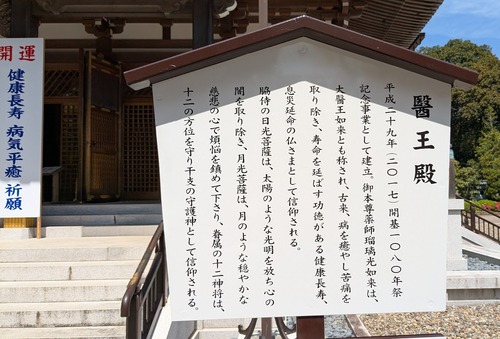 醫王殿
平成二十九年(二〇一七)開基一〇八〇年祭
記念事業として建立。御本尊薬師瑠璃光如来は、
大醫王如来とも称され、古来、病を癒やし苦痛を
取り除き、寿命を延ばす功徳がある健康長寿、
息災延命の仏さまとして信仰される。
脇侍の日光菩薩は、太陽のような光明を放ち心の
闇を取り除き、月光菩薩は、月のような穏やかな
慈悲の心で煩悩を鎮めて下さり、眷属の十二神将は、
十二の方位を守り干支の守護神として信仰される。
開運
健康長寿 病気平癒 祈願